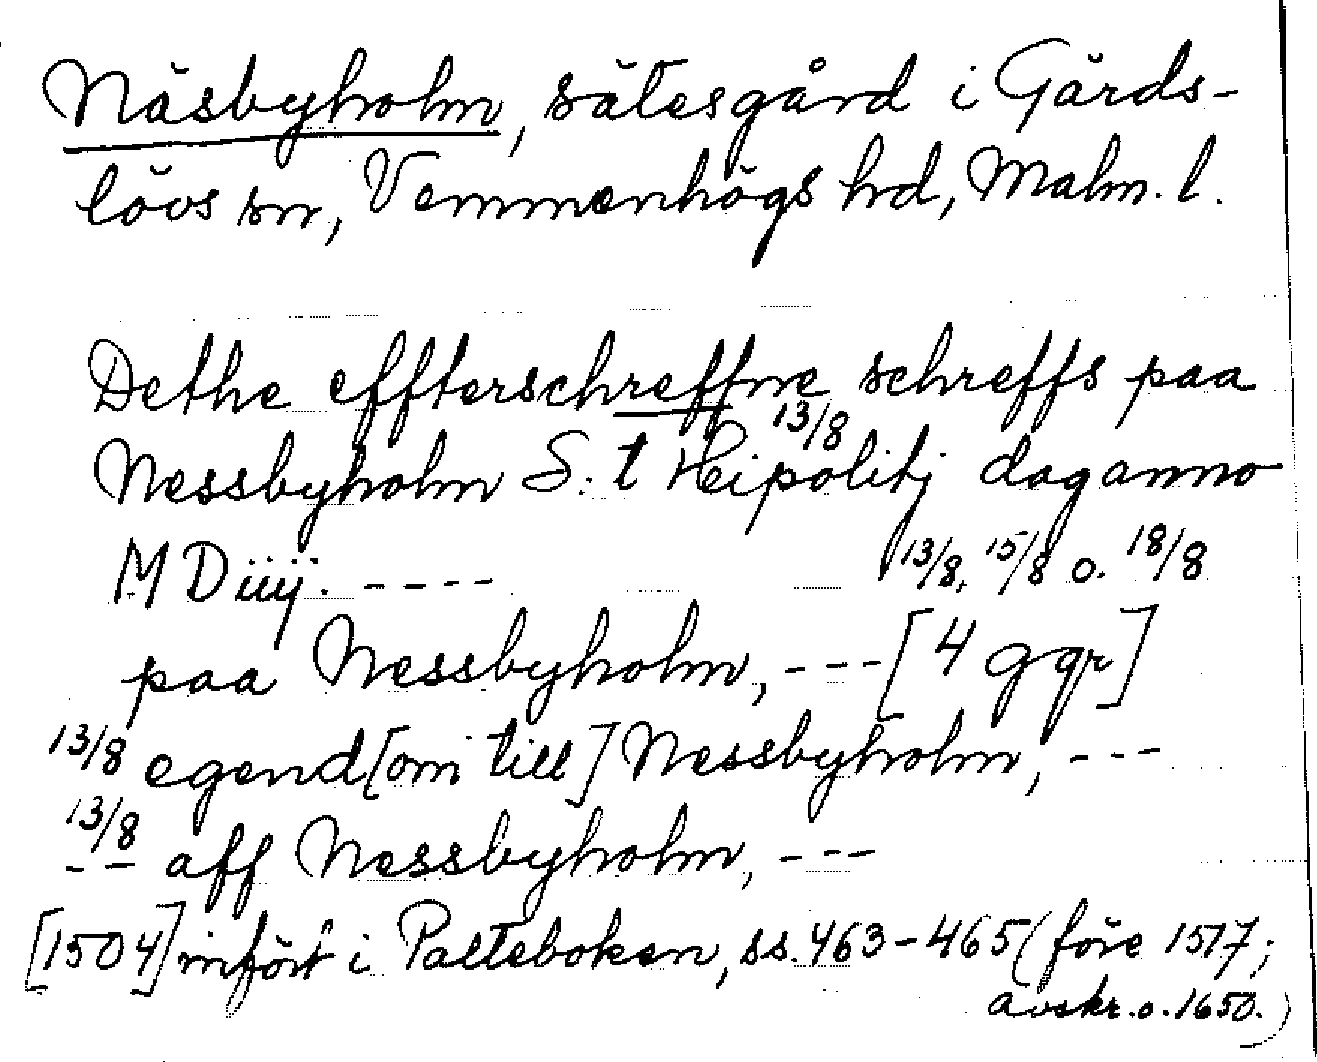 Näsbyholm, sätesgård i Gärds-
lövs sn, Vemmenhögs hd, Malm. l.
Dethe effterschreffne schreffs paa
13/8
Nessbyholm S. t Heipolitj dag anno
M D iiij. - - - - 13/8, 15/8 o. 18/8
paa Nessbyholm, - - - [4 ggr]
13/8 egend[om till] Nessbyholm, - - -
13/8
- - aff Nessbyholm, - - -
[1504] infört i Palteboken, ss. 463-465 (före 1517;
avskr. o. 1650.)